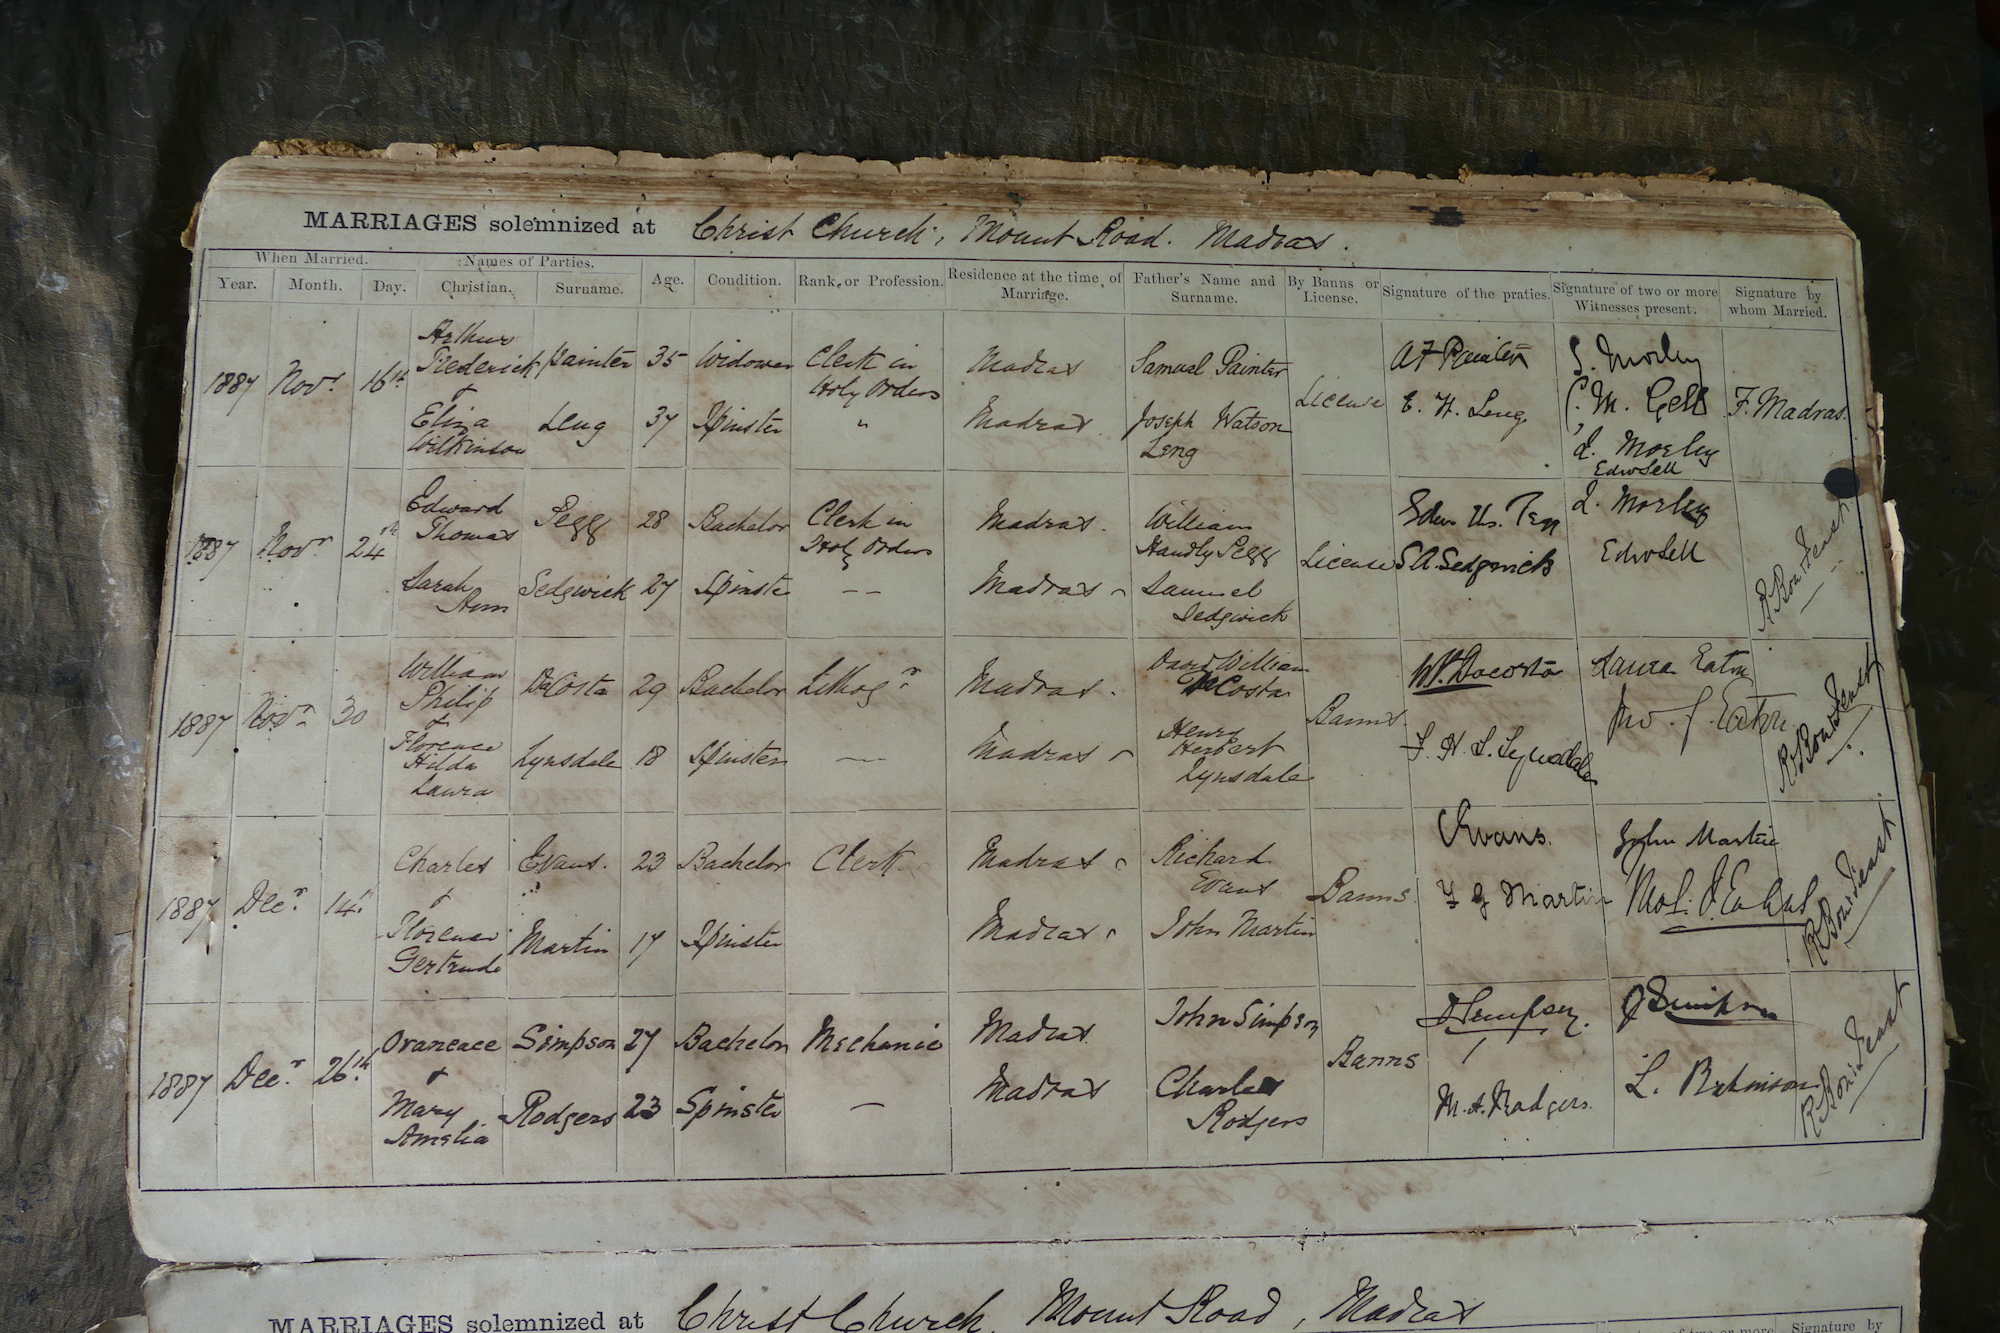 MARRIAGES solemnized at Christ Church, Mount Road. Madras.
When Married. Names of Parties. Age. Condition. Rank or Profession. Residence at the time of Marriage. Father's Name and Surname. By Banns or License. Signature of the praties. Signature of two or more Witnesses present. Signature by whom Married.
Year. Month. Day. Christian. Surname.
1887 Novr 16th Arthur Frederick Painter 35 Widower Clerk in Holy Orders Madras Samuel Painter License A F Painter S. Morley
&
Eliza Wilkinson Leng 37 Spinster " Madras Joseph Watson Leng E. W. Leng C. M. Gell F. Madras.
J. Morley
Edw Sell
1887 Novr 24th Edward Thomas Pegg 28 Bachelor Clerk in Holy Orders Madras. William Handly Pegg License J. Morley
Sarah Ann Sedgwick 27 Spinster — — Madras Samuel Sedgwick S A Sedgwick Edw Sell
1887 Novr 30 William Philip DeCosta 29 Bachelor Lithogr Madras. David William DeCosta Banns. W P Dacosta Laura Eaton
&
Florence Hilda Laura Lynsdale 18 Spinster — Madras Henry Herbert Lynsdale F. H. L. Lynsdale Jno. J. Eaton
1887 Decr 14th Charles Evans. 23 Bachelor Clerk Madras Richard Evans Banns. C Evans. John Martin
&
Florence Gertrude Martin 17 Spinster Madras John Martin F G Martin
1887 Decr 26th Oraneace Simpson 27 Bachelor Mechanic Madras John Simpson Banns J Simpson
&
Mary Amelia Rodgers 23 Spinster — Madras Charles Rodgers M. A. Rodgers. L.
MARRIAGES solemnized at Christ Church, Mount Road, Madras
of two or more Signature by